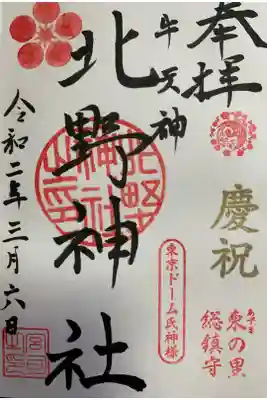 奉拝
慶祝
東の里
総鎮守
牛天神
東京ドーム氏神様
北野神社
北野神社之印
令和二年三月六日
宮司之印